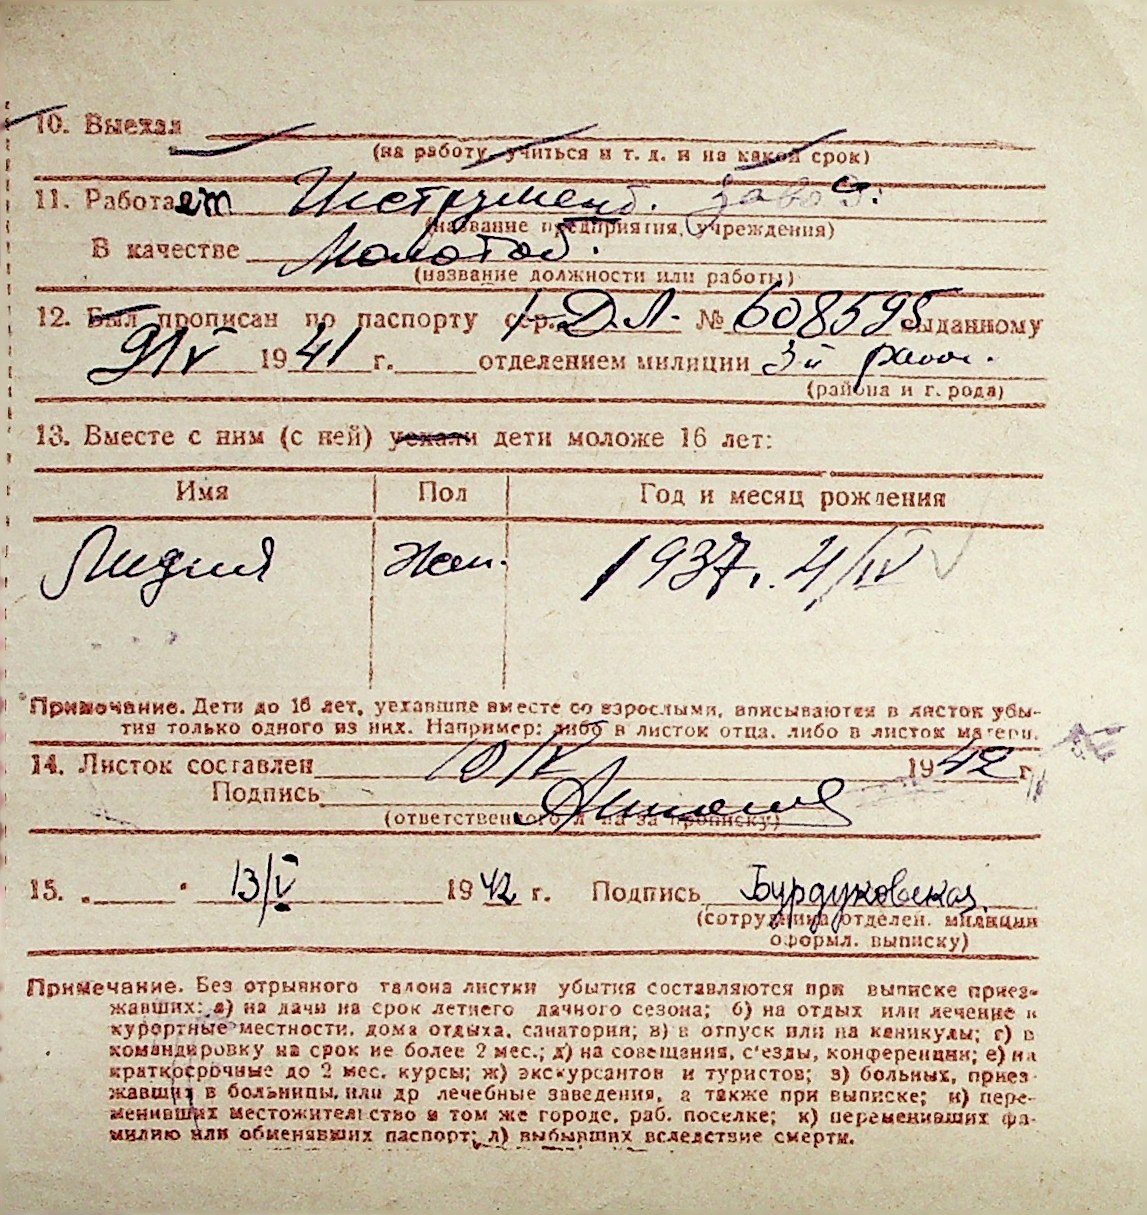 10. Выехал
(на работу, учиться и т. д. и на какой срок)
11. Работает Инструмент. завод.
(название предприятия, учреждения)
В качестве Молотоб.
(название должности или работы)
12. Был прописан по паспорту сер. 1-ДЛ- № 608595 выданному
9/V 1941 г. отделением милиции 3й район.
(района и города)
13. Вместе с ним (с ней) уехали дети моложе 16 лет:
Имя Пол Год и месяц рождения
Лидия жен. 1937г. 4/IV
Примечание. Дети до 16 лет, уехавшие вместе со взрослыми, вписываются в листок убы-
тия только одного из них. Например: либо в листок отца, либо в листок матери.
14. Листок составлен 10/V 1942 г.
Подпись
(ответственного л на за прописку)
15. 13/V 1942 г. Подпись Бурдуковская
(сотрудника отделен. милиции
оформл. выписку)
Примечание. Без отрывного талона листки убытия составляются при выписке приез-
жавших: а) на дачи на срок летнего дачного сезона; б) на отдых или лечение в
курортные местности, дома отдыха, санатории; в) в отпуск или на каникулы; г) в
командировку на срок не более 2 мес.; д) на совещания, с'езды, конференции; е) на
краткосрочные до 2 мес. курсы; ж) экскурсантов и туристов; з) больных, приез-
жавших в больницы, или др лечебные заведения, а также при выписке; и) пере-
менивших местожительство в том же городе, раб. поселке; к) переменивших фа-
милию или обменявших паспорт; л) выбывших вследствие смерти.